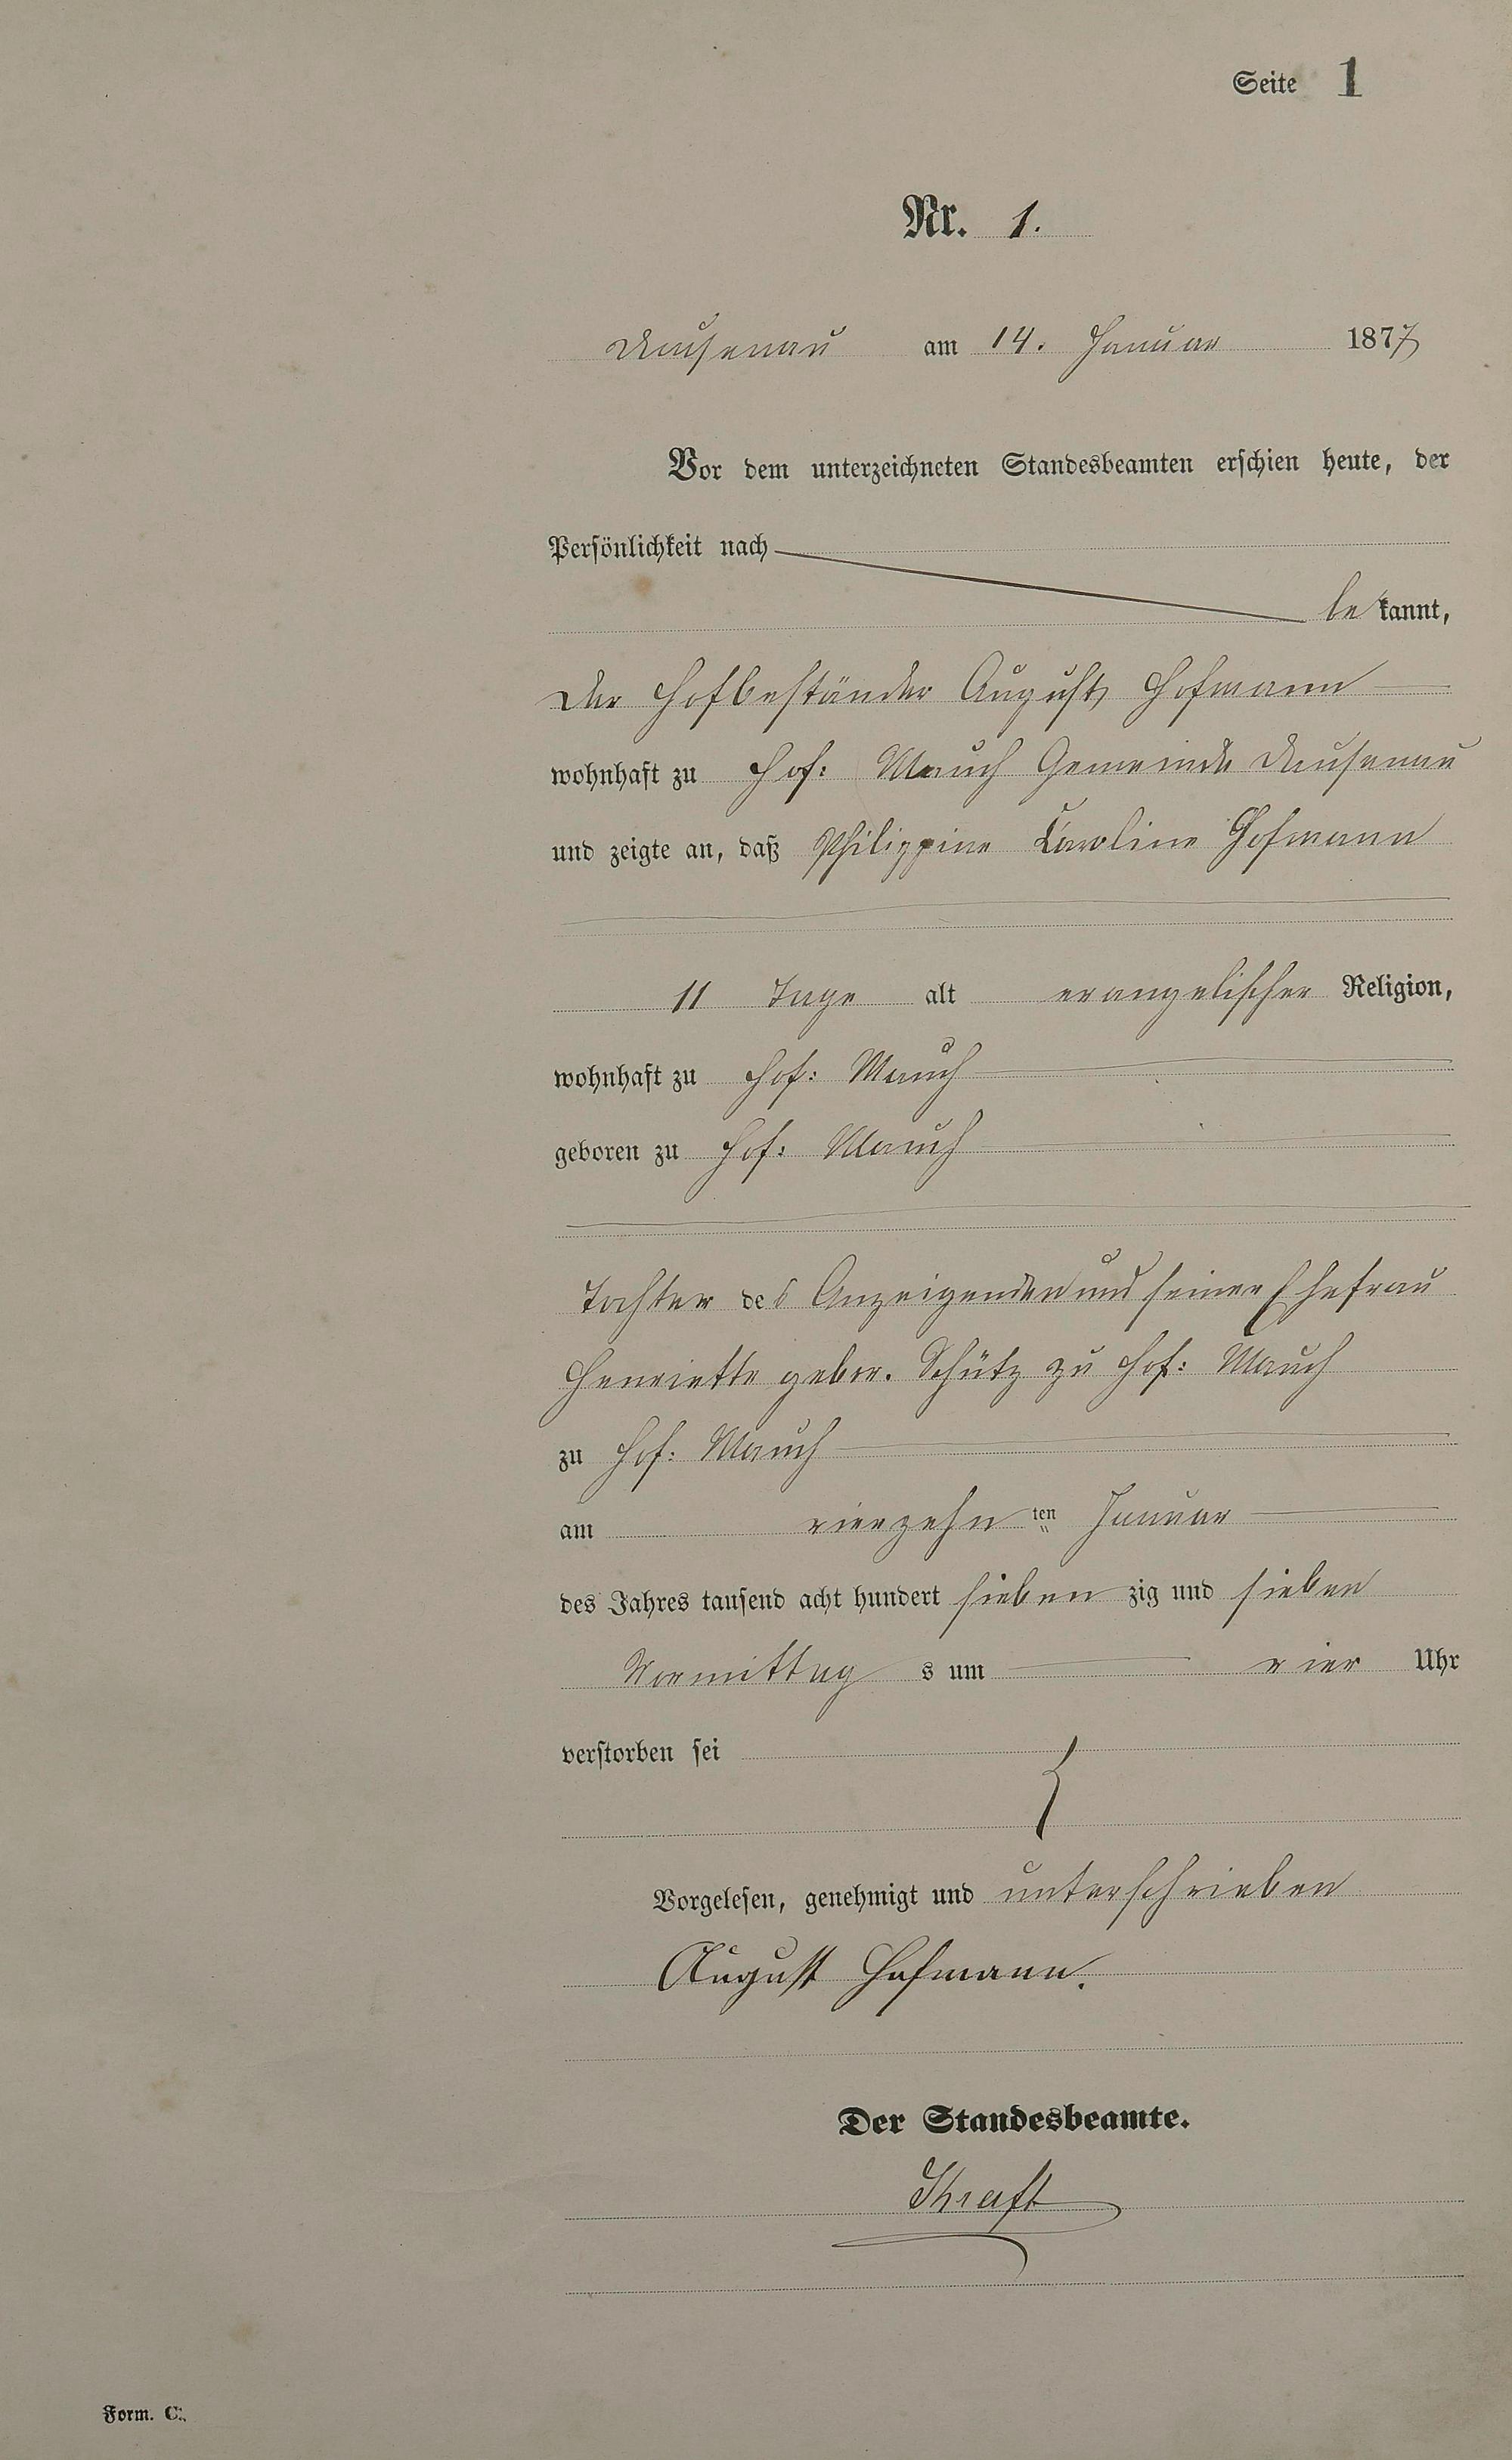 Seite 1
Nr. 1.
Dausenau am 14. Januar 1877
Vor dem unterzeichneten Standesbeamten erschien heute, der
Persönlichkeit nach
be kannt,
der Hofbeständer August Hofmann
wohnhaft zu Hof: Mauch Gemeinde Dausenau
und zeigte an, daß Philippine Caroline Hofmann
11 Tage alt evangelischer Religion,
wohnhaft zu Hof: Mauch
geboren zu Hof: Mauch
Tochter des Anzeigenden und seiner Ehefrau
Henriette gebor. Schütz zu Hof: Mauch
zu Hof: Mauch
am vierzehn ten Januar
des Jahres tausend acht hundert sieben zig und sieben
Vormittag s um vier Uhr
verstorben sei
Vorgelesen, genehmigt und unterschrieben
August Hofmann.
Der Standesbeamte.
Kraft
Form. C.